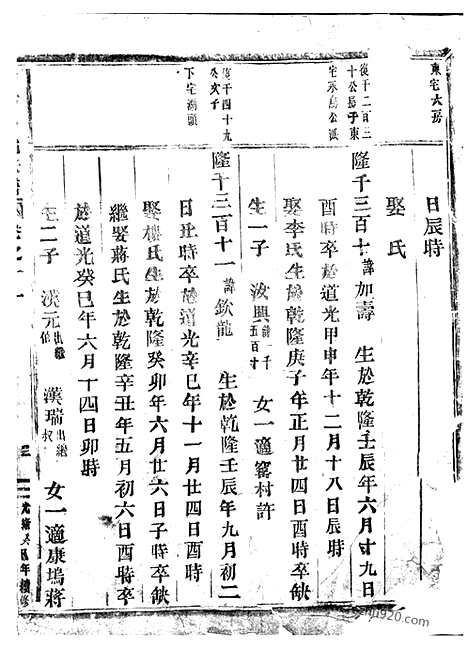 東宅六房
日辰時
娶 氏
復千二百三
十公長子東
宅承焉公派
隆千三百十諱加壽 生於乾隆壬辰年六月廿九日
酉時卒於道光甲申年十二月十八日辰時
娶李氏生於乾隆庚子年正月廿四日酉時卒缺
生一子 汝興 女一適窖村許
復千四十九
公次子
下宅湖頭
隆千三百十一諱欽龍 生於乾隆壬辰年九月初二
日丑時卒於道光辛巳年十一月廿四日酉時
娶樓氏生於乾隆癸卯年六月廿六日子時卒缺
繼娶蔣氏生於乾隆辛丑年五月初六日酉時卒
於道光癸巳年六月十四日卯時
生二子 漢元出繼伯 漢瑞出繼叔 女一適康塢蔣
年續修